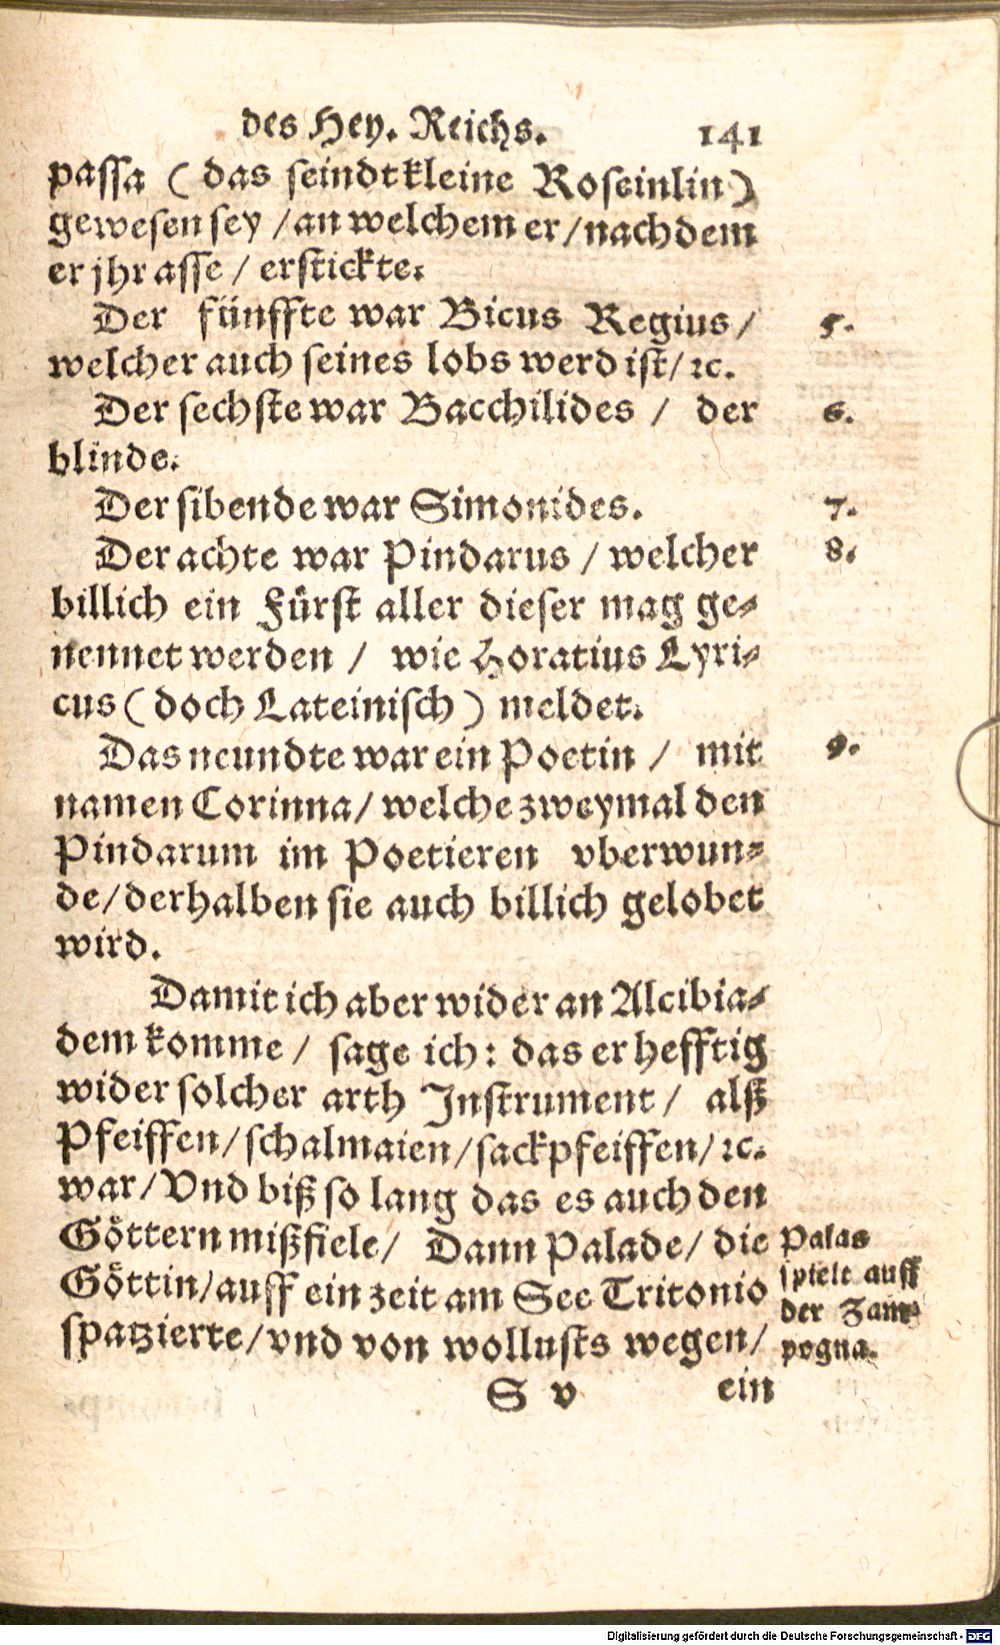 des Hey. Reichs. 141
passa (das seindt kleine Roseinlin)
gewesen sey / an welchem er / nach dem
er jhr asse / erstickte.
Der fünffte war Bicus Regius / 5.
welcher auch seines lobs werd ist / ꝛc.
Der sechste war Bacchilides / der 6.
blinde.
Der sibende war Simonides. 7.
Der achte war Pindarus / welcher 8.
billich ein Fürst aller dieser mag ge⸗
nennet werden / wie Horatius Lyri⸗
cus (doch Lateinisch) meldet.
Das neundte war ein Poetin / mit 9.
namen Corinna / welche zweymal den
Pindarum im Poetieren vberwun⸗
de / derhalben sie auch billich gelobet
wird.
Damit ich aber wider an Alcibia⸗
dem komme / sage ich: das er hefftig
wider solcher arth Instrument / alß
Pfeiffen / schalmaien / sackpfeiffen / ꝛc.
war / Vnd biß so lang das es auch den
Göttern mißfiele / Dann Palade / die
Göttin / auff ein zeit am See Tritonio
spatzierte / vnd von wollusts wegen /
Palas
spielt auff
der Zam⸗
pogna.
S v ein
Digitalisierung gefördert durch die Deutsche Forschungsgemeinschaft - DFG